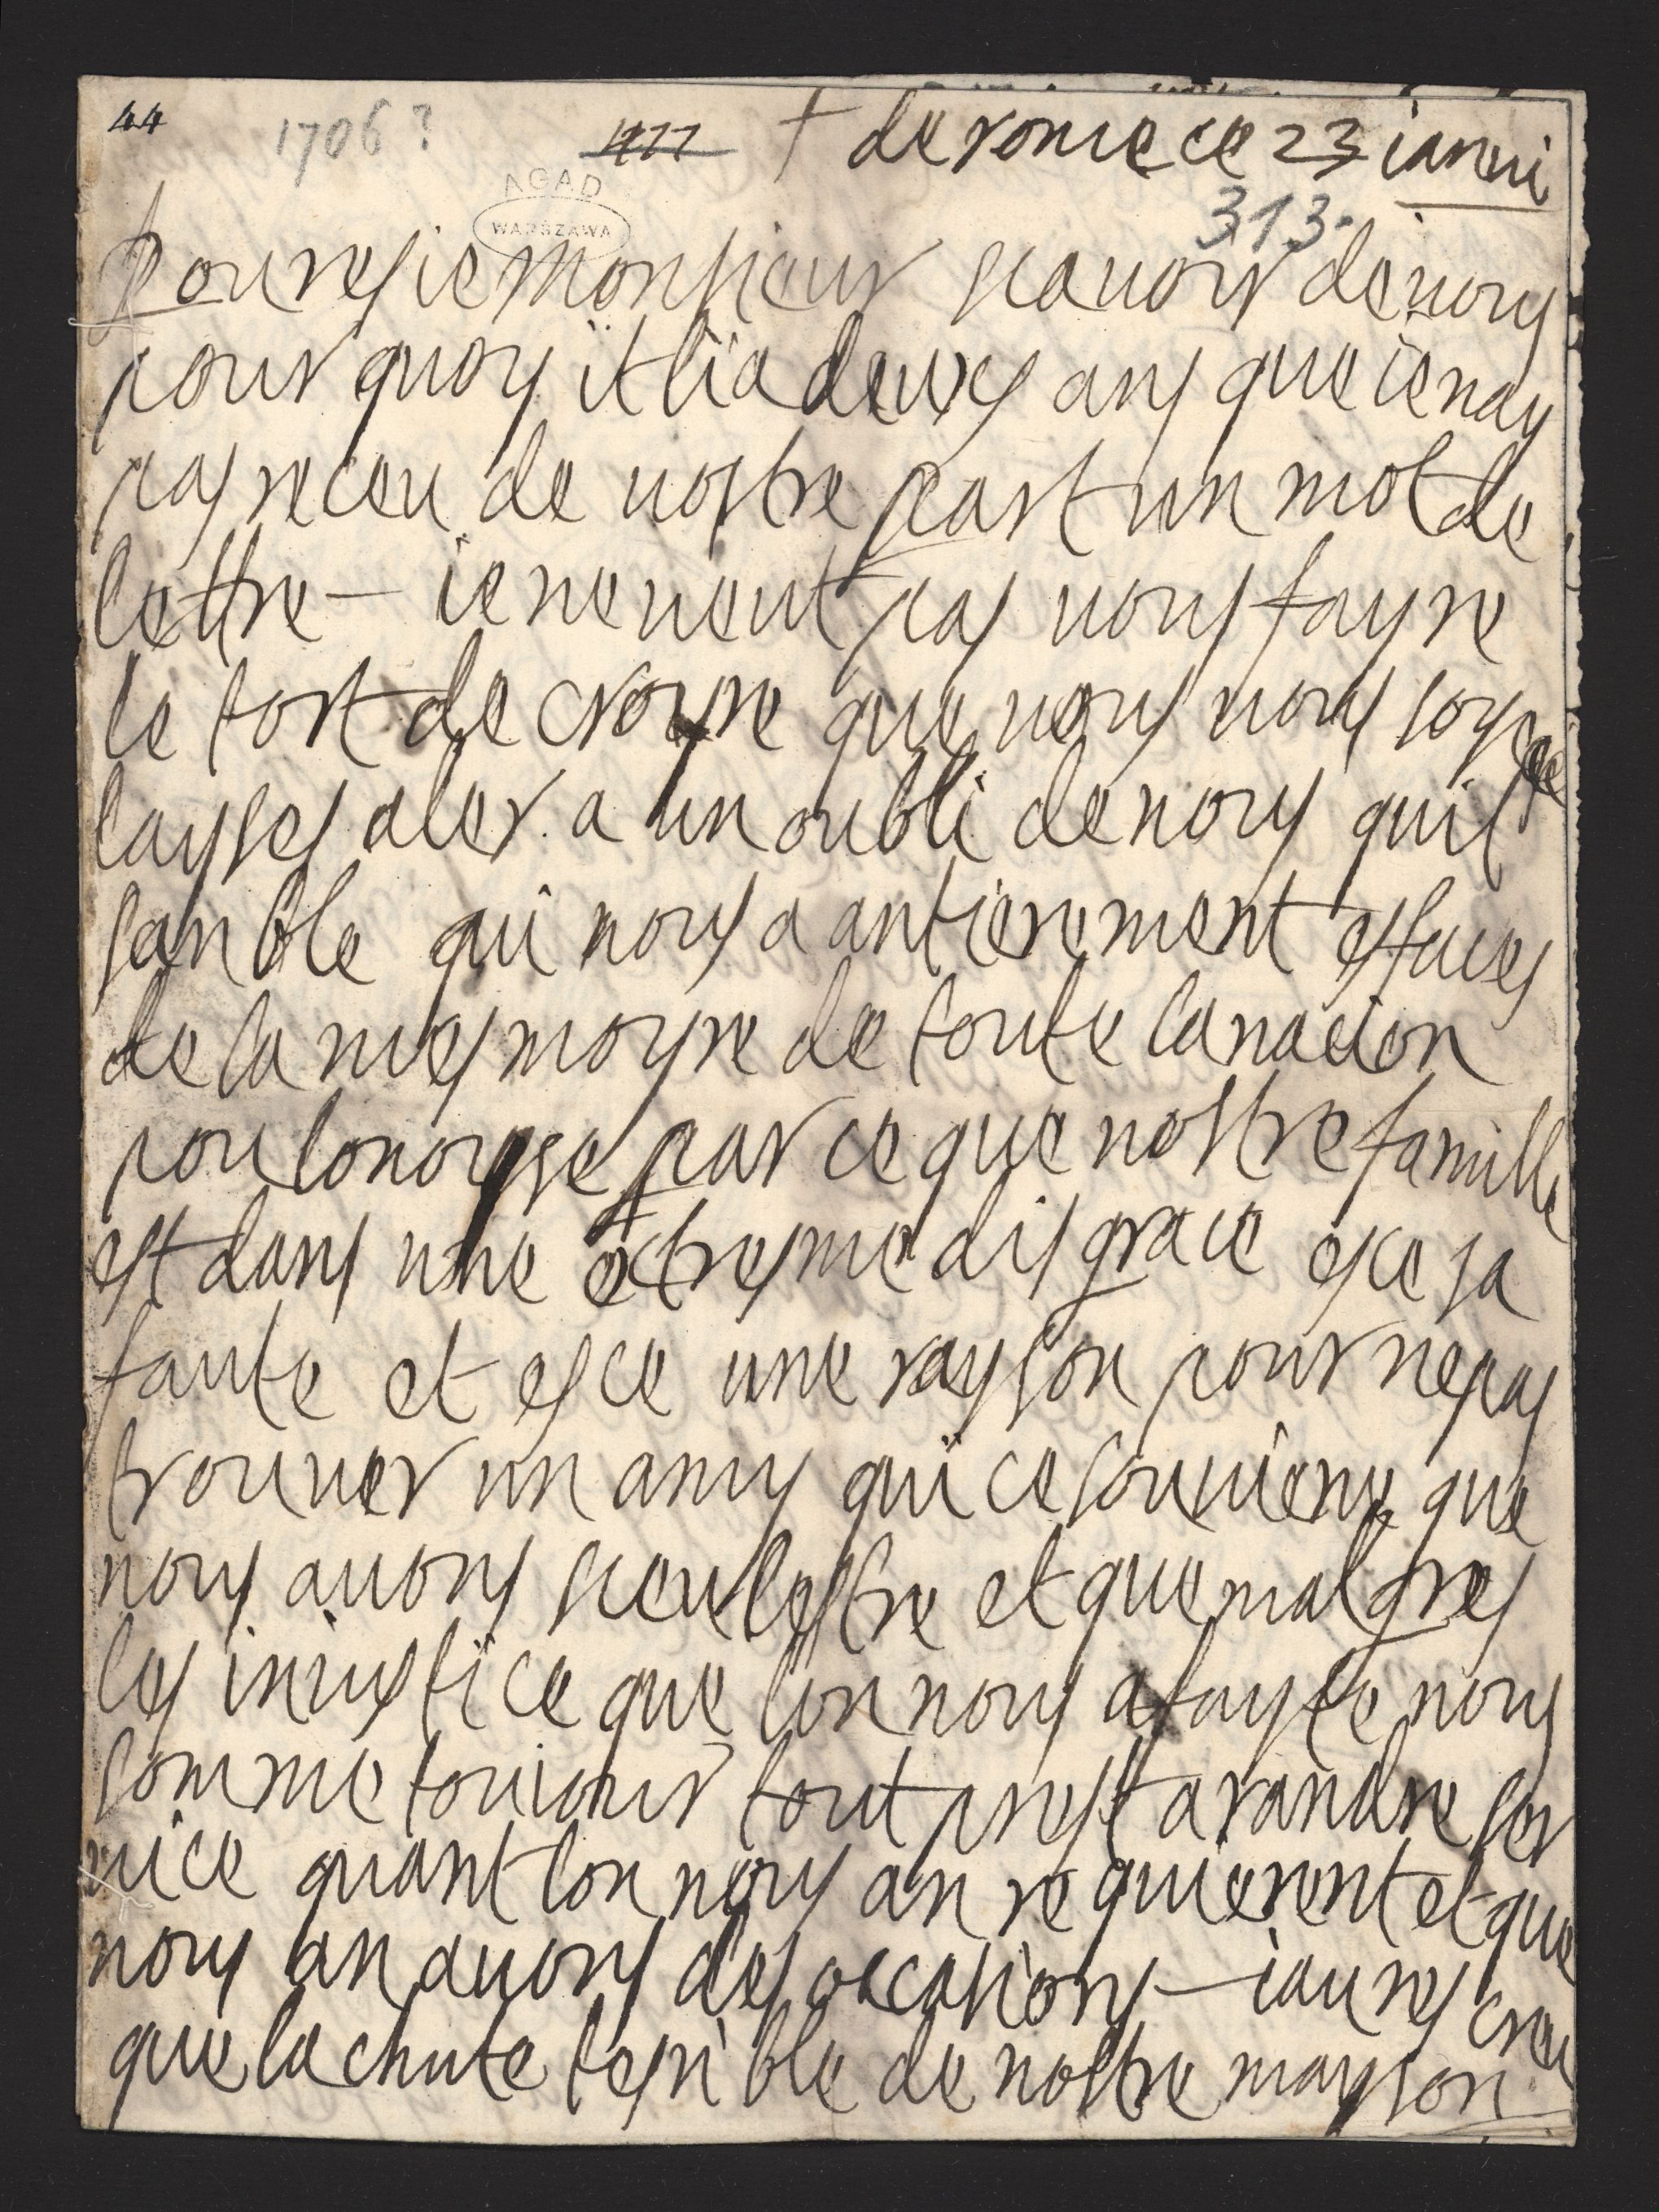 44 1706? 1977 + de rome ce 23 ianui
AGAD
WARSZAWA
313.
pouresie monsieur scauoir de uous
pour quoy it lia deuxs ans que ie nay
pas receu de uostre part un mot de
lettre – ie ne ueut pas uous fayre
le tort de croyre que uous uous soye
laysses aler a un oubli de nous quil
sanble qui nous a antierement esfaces
de la mesmoyre de toute la nacion
poulonoyse par ce que nostre famille
est dans une extresme disgrace esce sa
faute et esce une rayson pour nepas
trouuer un amy qui ce souuiene que
nous auons sceu lestre et que malgres
les iniustice que lon nous a fayte nous
somme touiour tout prest a randre ser
uice quant lon nous an requierent et que
nous an auons des occasions – iaures creu
que la chute tesrible de nostre mayson